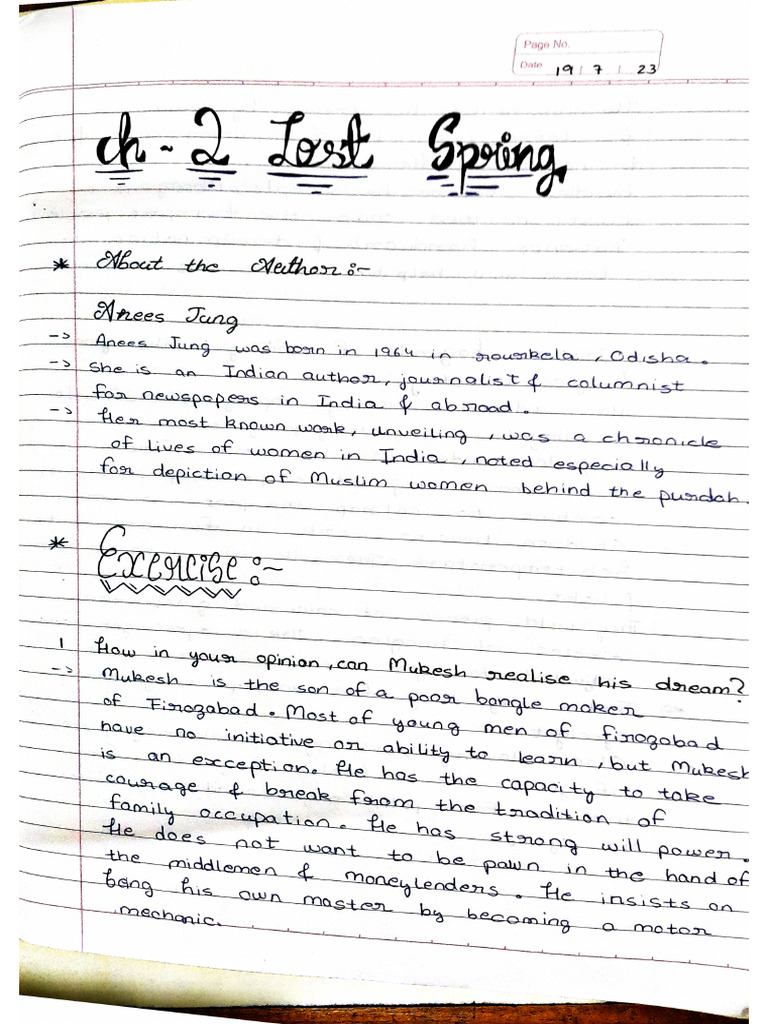 Page No.
Date 19 / 7 / 23
Ch - 2 Lost Spring
* About the Author :-
Anees Jung
-> Anees Jung was born in 1964 in rourkela, Odisha.
-> She is an Indian author, journalist & columnist
for newspapers in India & abroad.
-> Her most known work, unveiling, was a chronicle
of lives of women in India, noted especially
for depiction of Muslim women behind the purdah.
* Exercise :-
1 How in your opinion, can Mukesh realise his dream?
-> Mukesh is the son of a poor bangle maker
of Firozabad. Most of young men of firozabad
have no initiative or ability to learn, but Mukesh
is an exception. He has the capacity to take
courage & break from the tradition of
family occupation. He has strong will power.
He does not want to be pawn in the hand of
the middlemen & moneylenders. He insists on
being his own master by becoming a motor
mechanic.